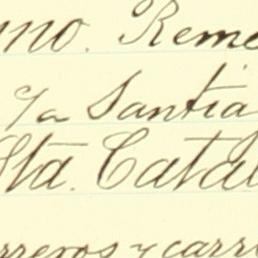 no. Reme
y/a Santia
Sta. Catal
rreros y carr